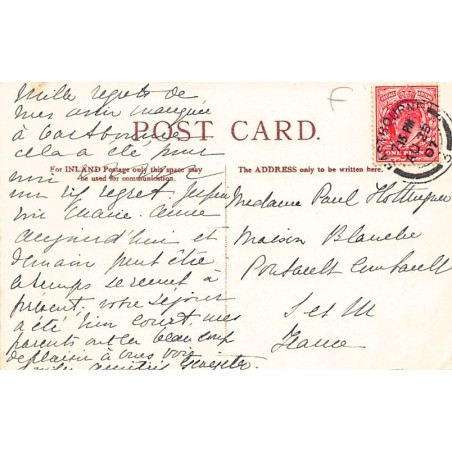 Mille regrets de
vous avoir manquée
à Eastbourne
cela a été pour
moi
un vif regret
Marie-Anne
aujourd'hui et
demain peut être
le temps se remet à
présent, votre séjour
a été bien court, mes
parents ont eu beaucoup
de plaisir à vous voir
amitiés
POST CARD.
For INLAND Postage only this space may
be used for communication.
The ADDRESS only to be written here.
F
EASTBOURNE
AU 25
07
Madame Paul Hottinguer
Maison Blanche
Pontault Combault
S et M
France